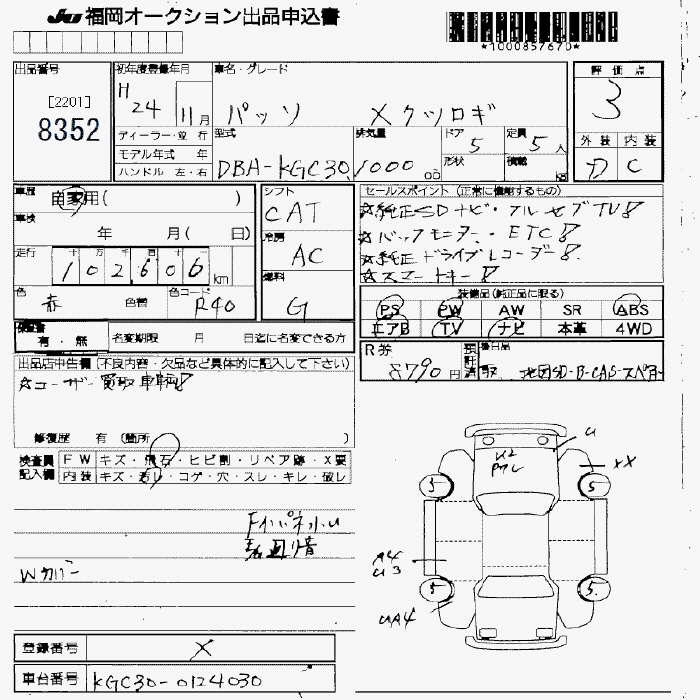 JU 福岡オークション出品申込書
*1000857670*
出品番号
[2201]
8352
初年度登録年月
H 24 11月
車名・グレード
パッソ Xクツロギ
評価点
3
外装 内装
D C
ディーラー・並 行
モデル年式 年
ハンドル 左・右
型式
DBA-KGC30
排気量
1000 cc
ドア 5
形状
定員 5人
積載 kg
車歴
自家用( )
車検
年 月( 日)
走行
十 万 千 百 十
102606 km
色 赤 色替
色コード R40
シフト
CAT
冷房
AC
燃料
G
セールスポイント (正常に機能するもの)
☆純正SDナビ・フルセブTV!
☆バックモニター・ETC!
☆純正ドライブレコーダー!
☆スマートキー!
装備品(純正品に限る)
PS PW AW SR ABS
エアB TV ナビ 本革 4WD
有・無
名変期限 月 日迄に名変できる方
R券 8790円 預託済
後日品
取、地図SD・B-CAS・スペアキー
出品店申告欄(不良内容・欠品など具体的に記入して下さい)
☆ユーザー買取車輌!
修復歴 有 (箇所 )
検査員
記入欄
FW キズ・飛石・ヒビ割・リペア跡・X要
内装 キズ・汚レ・コゲ・穴・スレ・キレ・破レ
Wカバー
U
U2
XX
5
5
A4
U3
5
5
UA4
登録番号 X
車台番号 KGC30-0124030